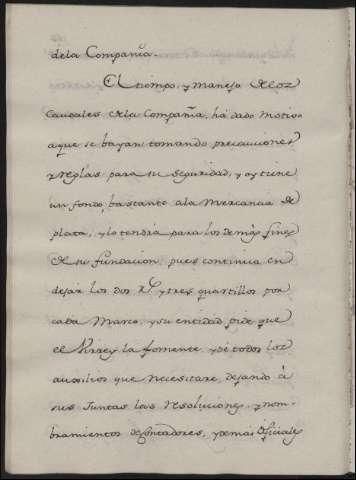 dela Compañia.
El tiempo, y manejo de los
Caudales de la Compañia, há dado motivo
aque se bayan tomando precauciones
y reglas para su seguridad, y oy tiene
un fondo, bastante ala Mercancia de
plata, y lo tendrá para los demás fines
de su fundacion, pues continua en
dejar los dos Rs. y tres quartillos por
cada Marco, y su entidad pide que
el Virrey la fomente, y dé todos los
auxilios que necesitare, dejando á
sus Juntas las resoluciones, y nom-
bramientos de Contadores, y demás Oficiales